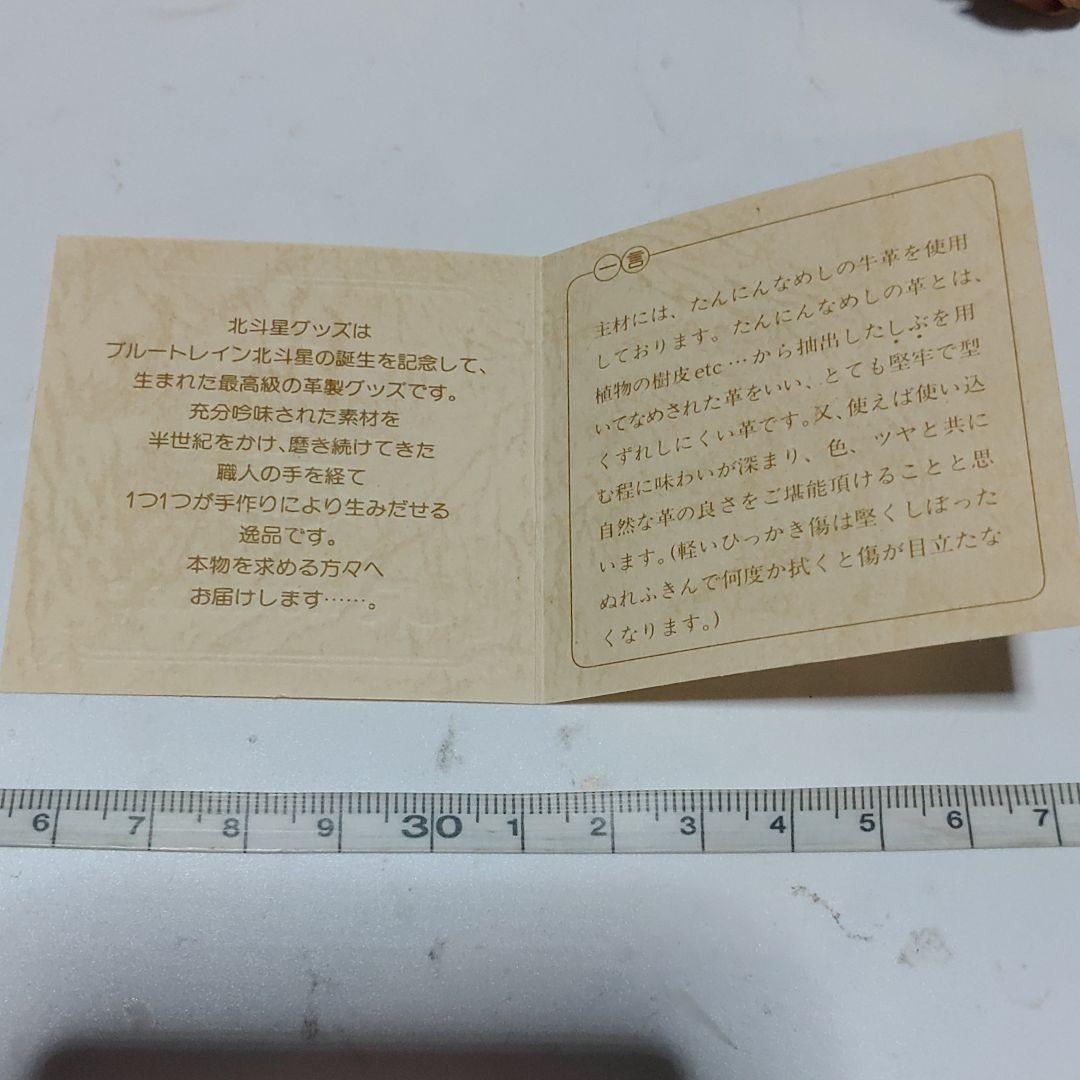 北斗星グッズは
ブルートレイン北斗星の誕生を記念して、
生まれた最高級の革製グッズです。
充分吟味された素材を
半世紀をかけ、磨き続けてきた
職人の手を経て
1つ1つが手作りにより生みだせる
逸品です。
本物を求める方々へ
お届けします……。
一言
主材には、たんにんなめしの牛革を使用
しております。たんにんなめしの革とは、
植物の樹皮etc…から抽出したしぶを用
いてなめされた革をいい、とても堅牢で型
くずれしにくい革です。又、使えば使い込
む程に味わいが深まり、色、ツヤと共に
自然な革の良さをご堪能頂けることと思
います。(軽いひっかき傷は堅くしぼった
ぬれふきんで何度か拭くと傷が目立たな
くなります。)
6 7 8 9 30 1 2 3 4 5 6 7